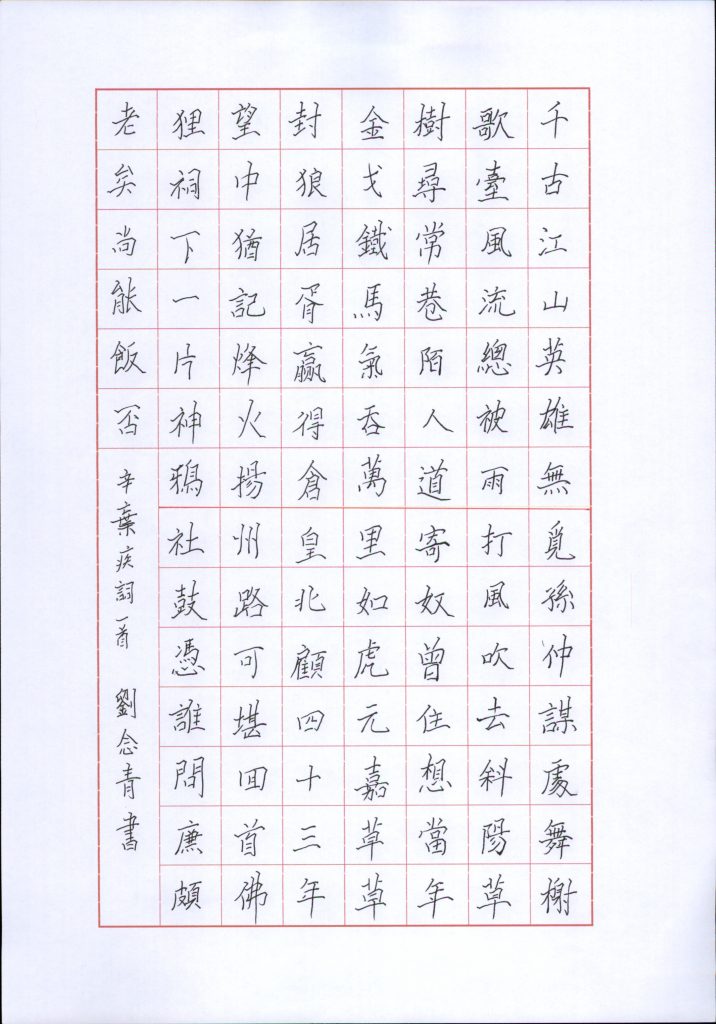 千古江山英雄無覓孫仲謀處舞榭
歌臺風流總被雨打風吹去斜陽草
樹尋常巷陌人道寄奴曾住想當年
金戈鐵馬氣吞萬里如虎元嘉草草
封狼居胥贏得倉皇北顧四十三年
望中猶記烽火揚州路可堪回首佛
狸祠下一片神鴉社鼓憑誰問廉頗
老矣尚能飯否
辛棄疾詞一首 劉念青書